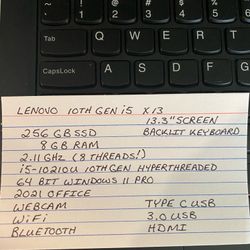 Tab
Q
W
E
R
CapsLock
A
S
D
F
G
LENOVO 10TH GEN i5 X13
13.3" SCREEN
256 GB SSD BACKLIT KEYBOARD
8 GB RAM
2.11 GHz (8 THREADS!)
i5-10210U 10TH GEN HYPERTHREADED
64 BIT WINDOWS 11 PRO
2021 OFFICE
WEBCAM TYPE C USB
WiFi 3.0 USB
BLUETOOTH HDMI